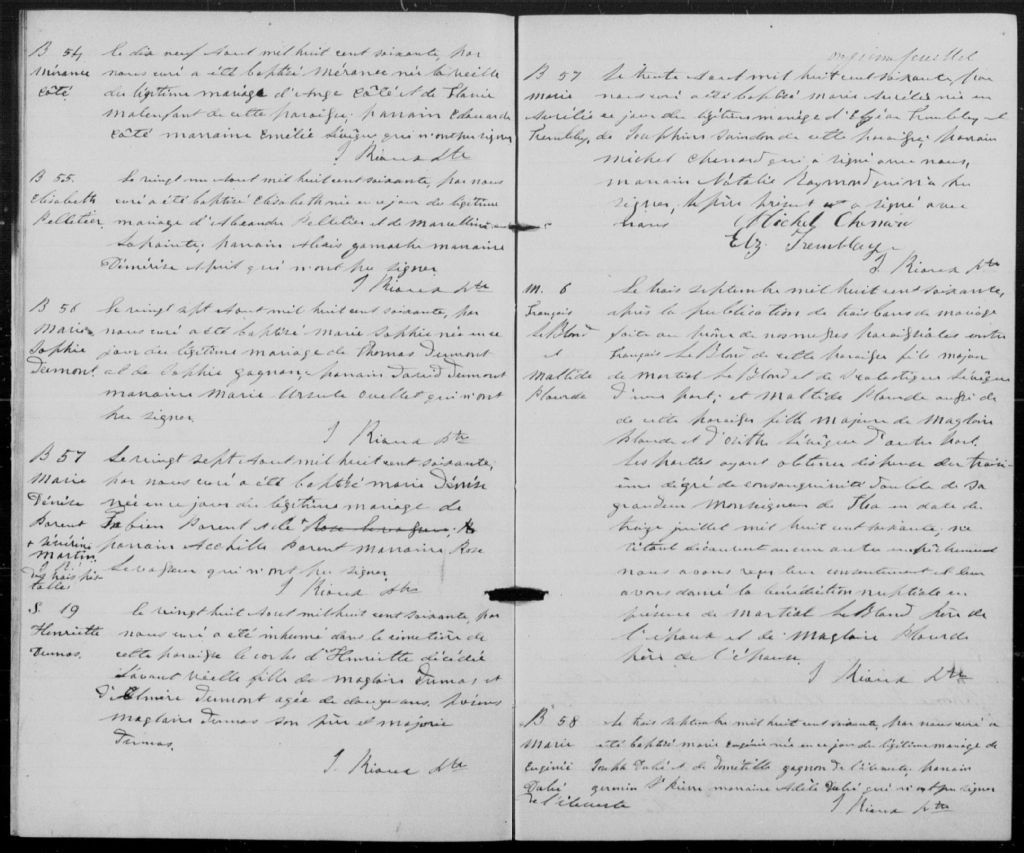 B 54
Mérance
Côté
Le dix neuf Aout mil huit cent soixante, par
nous curé a été baptisé Mérance née la veille
du légitime mariage d'Ange Côté et de Flavie
Malenfant de cette paroisse; parrain Edouard
Côté marraine Emélie Lévêque qui n'ont pu signer
J Rioux Ptre
B 55.
Elisabeth
Pelletier
Le vingt un Aout mil huit cent soixante, par nous
curé a été baptisé Elisabeth née en ce jour du légitime
mariage d'Alexandre Pelletier et de Marcelline
Lapointe; parrain Alexis Gamache marraine
Démérise April qui n'ont pu signer
J Rioux Ptre
B 56
Marie
Sophie
Dumont
Le vingt sept Aout mil huit cent soixante, par
nous curé a été baptisé Marie Sophie née en ce
jour du légitime mariage de Thomas Dumont
et de Sophie Gagnon; parrain David Dumont
marraine Marie Ursule Ouellet qui n'ont
pu signer.
J Rioux Ptre
B 57
Marie
Dénise
Parent
+ Sévérine
Martin
J R
Le vingt sept Aout mil huit cent soixante,
par nous curé a été baptisé Marie Dénise
née en ce jour du légitime mariage de
Fabien Parent et de Rose Levasseur.
parrain Achille Parent marraine Rose
Levasseur qui n'ont pu signer
J Rioux Ptre
S. 19
Henriette
Dumas.
Le vingt huit Aout mil huit cent soixante, par
nous curé a été inhumé dans le cimetière de
cette paroisse le corps d'Henriette décédée
l'avant veille fille de Magloire Dumas et
d'Elmire Dumont agée de douze ans. présens
Magloire Dumas son père et Majorie
Dumas.
J. Rioux Ptre
onzième feuillet
B 57
Marie
Aurélie
Tremblay
Le trente Aout mil huit cent soixante, par
nous curé a été baptisé Marie Aurélie née en
ce jour du légitime mariage d'Elzéar Tremblay et
de Josephine Saindon de cette paroisse; parrain
Michel Chenard qui a signé avec nous,
marraine Natalie Raymond qui n'a pu
signer, le père présent a signé avec
nous
Michel Chenard
Elz. Tremblay
J. Rioux Ptre
M. 6
François
LeBlond
et
Matilde
Plourde
Le trois septembre mil huit cent soixante,
après la publication de trois bans de mariage
faite au prône de nos messes paroissiales entre
François Le Blond de cette paroisse fils majeur
de Martial Le Blond et de Scolastique Lévêque
d'une part; et Matilde Plourde aussi de
de cette paroisse fille majeure de Magloire
Plourde et d'Osithe Lévêque d'autre part.
Les parties ayant obtenu dispense du trois-
ième dégré de consanguinité double de Sa
grandeur Monseigneur de Tloa en date du
treize juillet mil huit cent soixante, ne
s'étant découvert aucun autre empêchement
nous avons reçu leur consentement et leur
avons donné la bénédiction nuptiale en
présence de Martial Le Blond père de
l'époux et de Magloire Plourde
père de l'épouse.
J Rioux Ptre
B 58
Marie
Eugénie
Dubé
de l'Isleverte
Le trois septembre mil huit cent soixante, par nous curé a
été baptisé Marie Eugénie née en ce jour du légitime mariage de
Joseph Dubé et de Domitille Gagnon de l'Isleverte; parrain
Germain St Pierre marraine Adèle Dubé qui n'ont pu signer
J Rioux Ptre